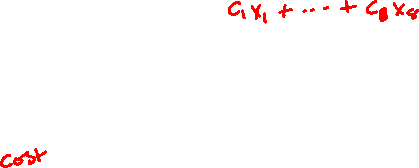 C₁ X₁ + ... + C₈ X₈
cost